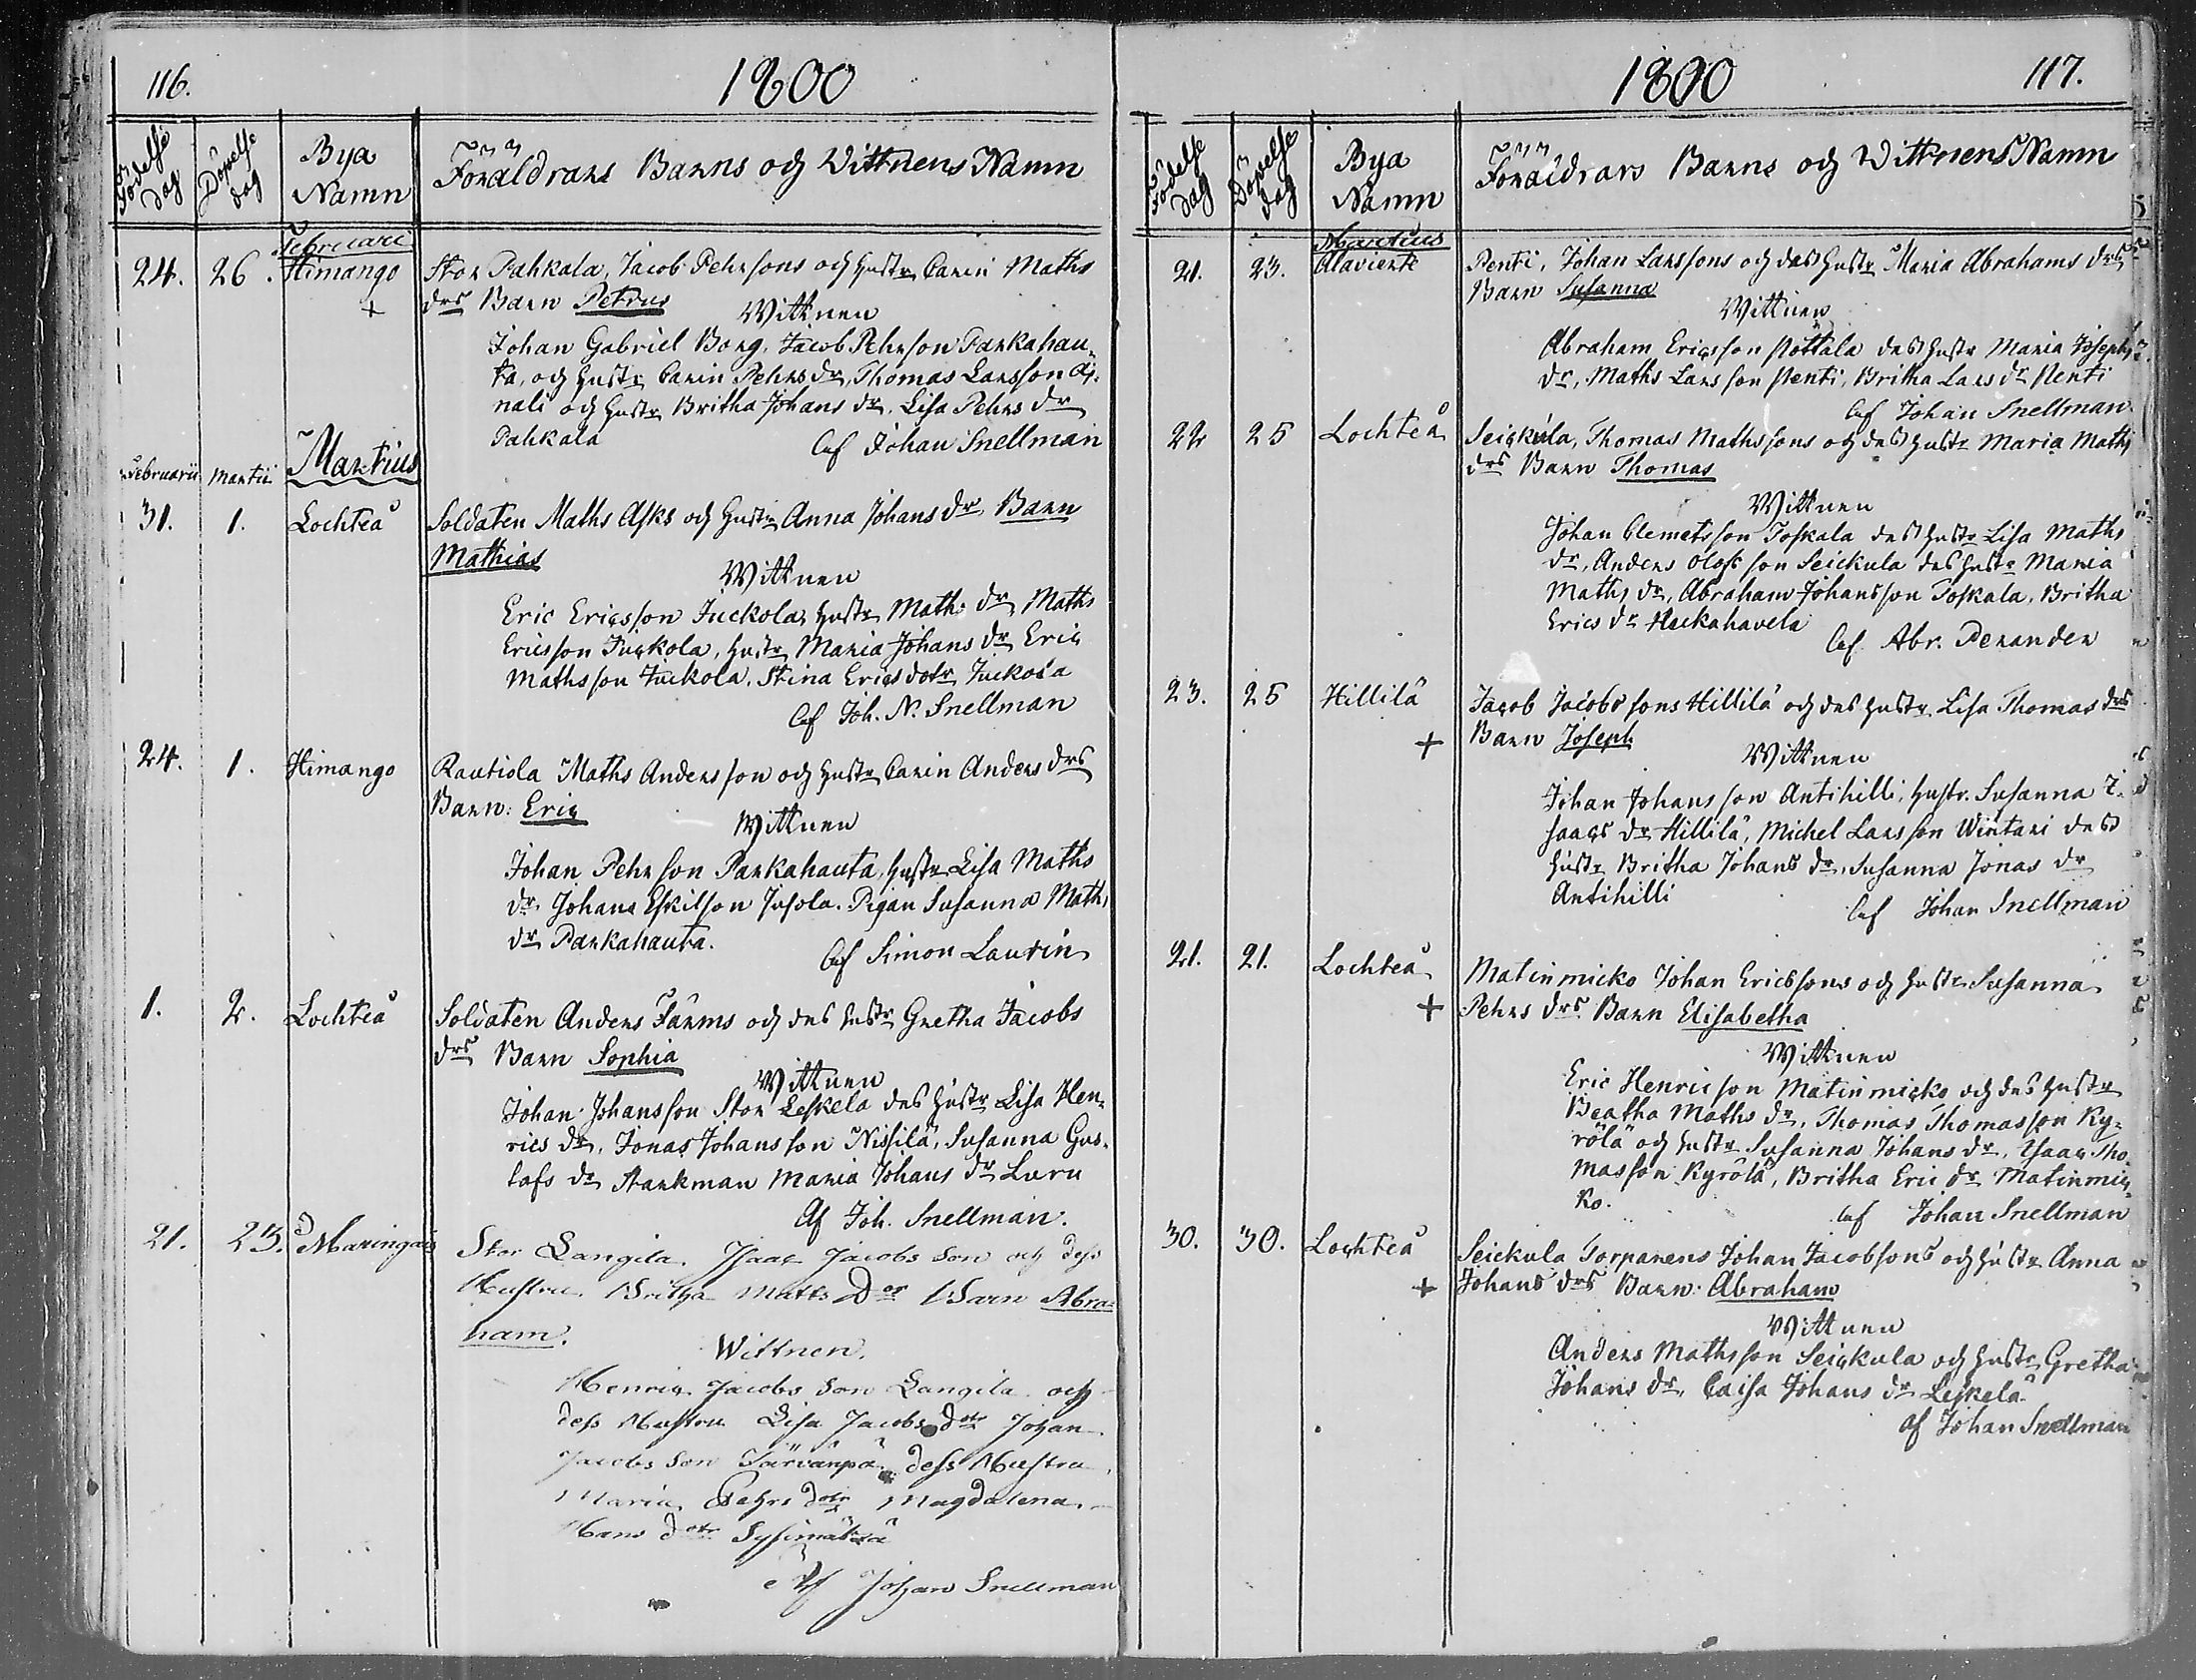 116.
1800
Födelse dag
Döpelse dag
Bya Namn
Föräldrars Barns och Wittnens Namn
Februari
24. 26. Himango Stor Pahkala, Jacob Pehrsons och hustr Carin Maths
+ drs Barn Petrus
Wittnen
Johan Gabriel Borg, Jacob Pehrson Parkahau
ta, och hustr Carin Pehrs dr, Thomas Larsson
nali och hustr Britha Johans dr, Lisa Pehrs dr
Pahkala Af Johan Snellman
Februarii Martii Martius
31. 1. Lochteå Soldaten Maths Asks och hustr Anna Johans dr Barn
Mathias
Wittnen
Eric Ericsson Juckola, hustr Math: dr, Maths
Ericsson Juckola, hustr Maria Johans dr Eric
Mathsson Juckola, Stina Erics dotr Juckola
Af Joh. N. Snellman
24. 1. Himango Rautiola Maths Andersson och hustr Carin Anders drs
Barn: Eric
Wittnen
Johan Pehrson Parkahauta, hustr Lisa Maths
dr. Johans Eskilson Jusola. Pigan Susanna Maths
dr Parkahauta.
Af Simon Laurin
1. 2. Lochteå Soldaten Anders Färms och des hustr Gretha Jacobs
drs Barn Sophia
Wittnen
Johan Johansson Stor Leskelä des hustr Lisa Hen
rics dr, Jonas Johansson Nissilä, Susanna Gus
tafs dr Starkman Maria Johans dr Luru
Af Joh. Snellman.
21. 23. Maringais Stor Langila Isaac Jacobs Son och dess
Hustru Britha Matts Dor Barn Abra=
ham.
Wittnen.
Henric Jacobs Son Langila och
dess Hustru Lisa Jacobs dotr Johan
Jacobs Son Särvänpä dess Hustru
Maria Pehrs dotr Magdalena
Hans dotr
Af Johan Snellman
1800
117.
Födelse dag
Döpelse dag
Bya Namn
Föräldrars Barns och Wittnens Namn
Martius
21. 23. Alavierke Penti, Johan Larssons och des hustr Maria Abrahams drs
Barn Susanna
Wittnen
Abraham Ericsson Pottala des hustr Maria Josephs
dr, Maths Larsson Penti, Britha Lars dr Penti
Af Johan Snellman
22 25 Lochteå Seickula, Thomas Mathssons och des hustr Maria Maths
drs Barn Thomas
Wittnen
Johan Clemetsson Toskala des hustr Lisa Maths
dr, Anders Olofsson Seickula des hustr Maria
Maths dr, Abraham Johansson Toskala, Britha
Erics dr Hackahavela
Af. Abr. Perander
23. 25 Hillilä Jacob Jacobssons Hillilä och des hustr Lisa Thomas drs
+ Barn Joseph
Wittnen
Johan Johansson Antihilli, hustr. Susanna I
saacs dr Hillilä, Michel Larsson Wintari des
hustr Britha Johans dr, Susanna Jonas dr
Antihilli
Af Johan Snellman
21. 21. Lochteå Matinmicko Johan Ericssons och hustr Susanna
+ Pehrs drs Barn Elisabetha
Wittnen
Eric Henricson Matinmicko och des hustr
Beatha Maths dr, Thomas Thomasson Ky=
rölä och hustr Susanna Johans dr, Isaac Tho
masson Kyrölä, Britha Eric dr Matinmic
ko.
Af Johan Snellman
30. 30. Lochteå Seickula Torparens Johan Jacobsons och hustr Anna
+ Johans drs Barn: Abraham
Wittnen
Anders Mathsson Seickula och hustr Gretha
Johans dr, Caisa Johans dr Leskelä
af Johan Snellman